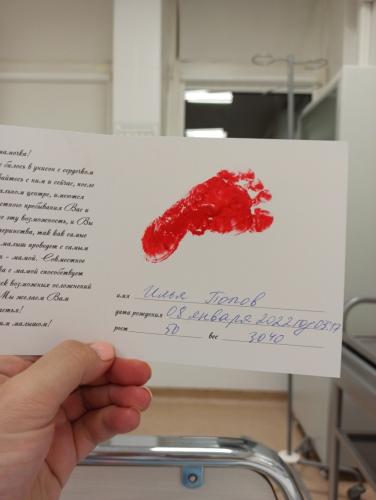 мамочка!
билось в унисон с сердечком
вайтесь с ним и сейчас, после
альном центре, имеются
естного пребывания Вас и
е эту возможность, и Вы
теринства, так как самые
малыш проведет с самым
- мамой. Совместное
а с мамой способствует
ск возможных осложнений
Мы желаем Вам
астья!
им малышом!
имя Илья Попов
дата рождения 08 января 2022
рост 50 вес 3040